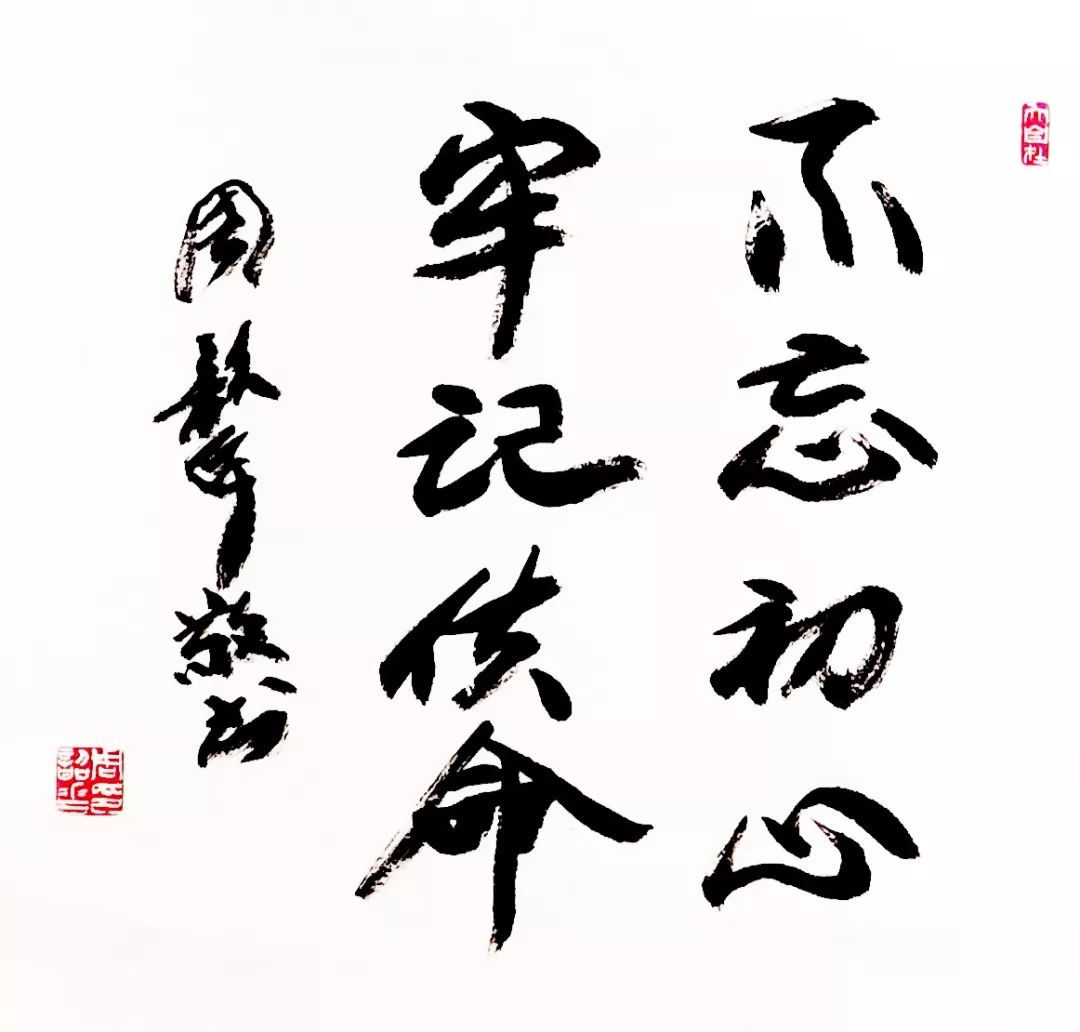 不忘初心
牢记使命
周韶华敬书